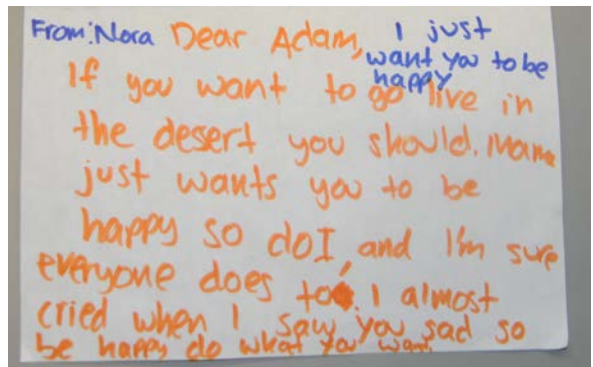 From: Nora Dear Adam, I just
want you to be
happy
If you want to go live in
the desert you should. Mama
just wants you to be
happy so do I, and I'm sure
everyone does too. I almost
cried when I saw you sad so
be happy do what you want